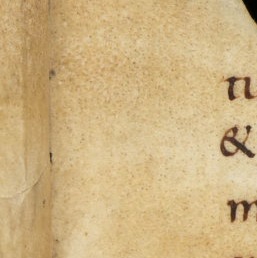 n
&
m